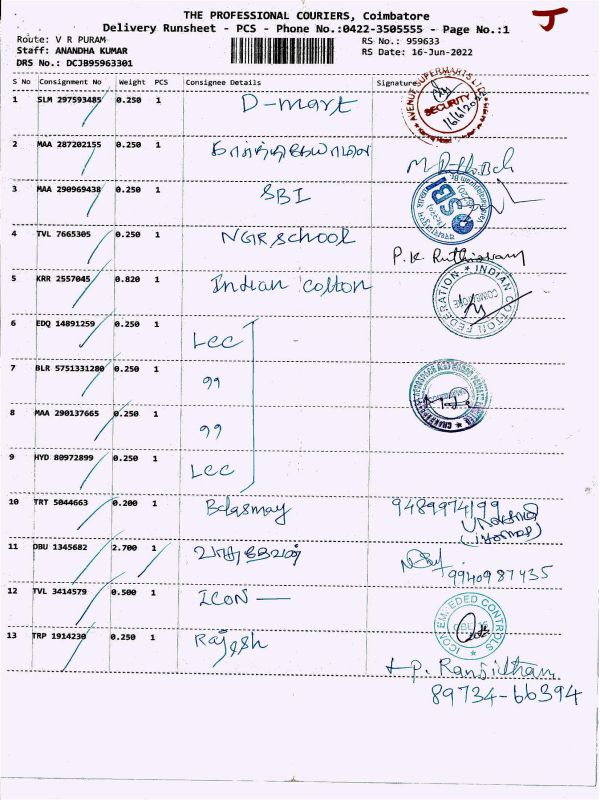 THE PROFESSIONAL COURIERS, Coimbatore
J
Delivery Runsheet - PCS - Phone No.:0422-3505555 - Page No.:1
Route: V R PURAM
RS No.: 959633
Staff: ANANDHA KUMAR
RS Date: 16-Jun-2022
DRS No.: DCJB95963301
S No Consignment No Weight PCS Consignee Details Signature
1 SLM 297593485 0.250 1 D-mart
AVENUE SUPERMARTS LTD
SECURITY
16/6/2022
2 MAA 287202155 0.250 1
3 MAA 290969438 0.250 1 SBI
SBI
4 TVL 7665305 0.250 1 NGR School
P.K
5 KRR 2557045 0.820 1 Indian Cotton
INDIAN COTTON FEDERATION
COIMBATORE
6 EDQ 14891259 0.250 1 Lcc
7 BLR 5751331280 0.250 1 99
8 MAA 290137665 0.250 1 99
9 HYD 80972899 0.250 1 Lcc
10 TRT 5044663 0.200 1 9489974199
11 DBU 1345682 2.700 1
9940987435
12 TVL 3414579 0.500 1 ICON —
ICON EMBEDED CONTROLS
13 TRP 1914230 0.250 1 Rajesh
t.p. Ranjitham
89734-66394